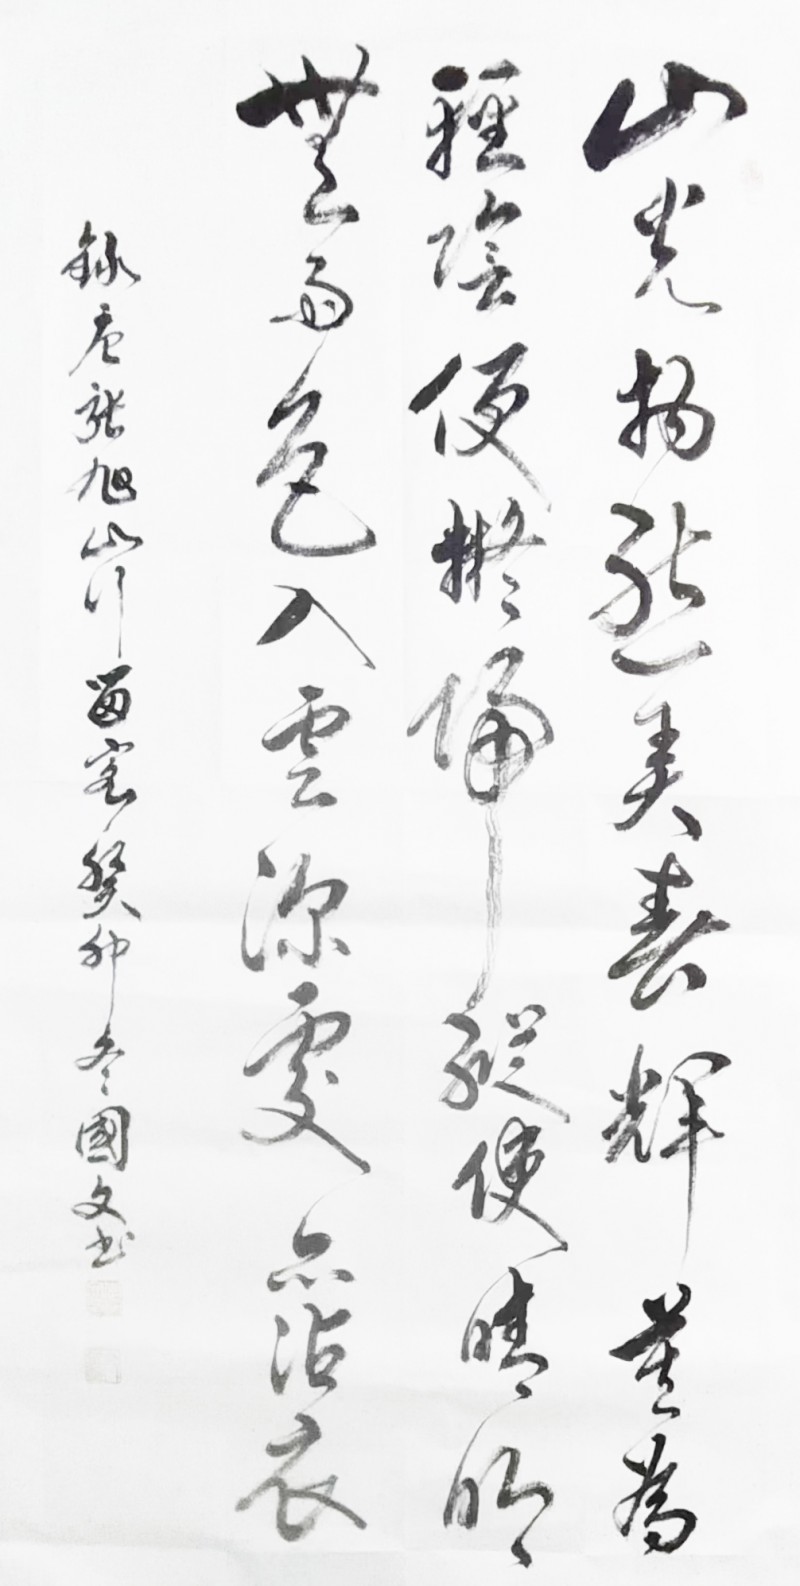 山光物態弄春輝莫為
輕陰便擬歸縱使晴明
無雨色入雲深處亦沾衣
錄唐張旭山行留客癸卯冬國文書